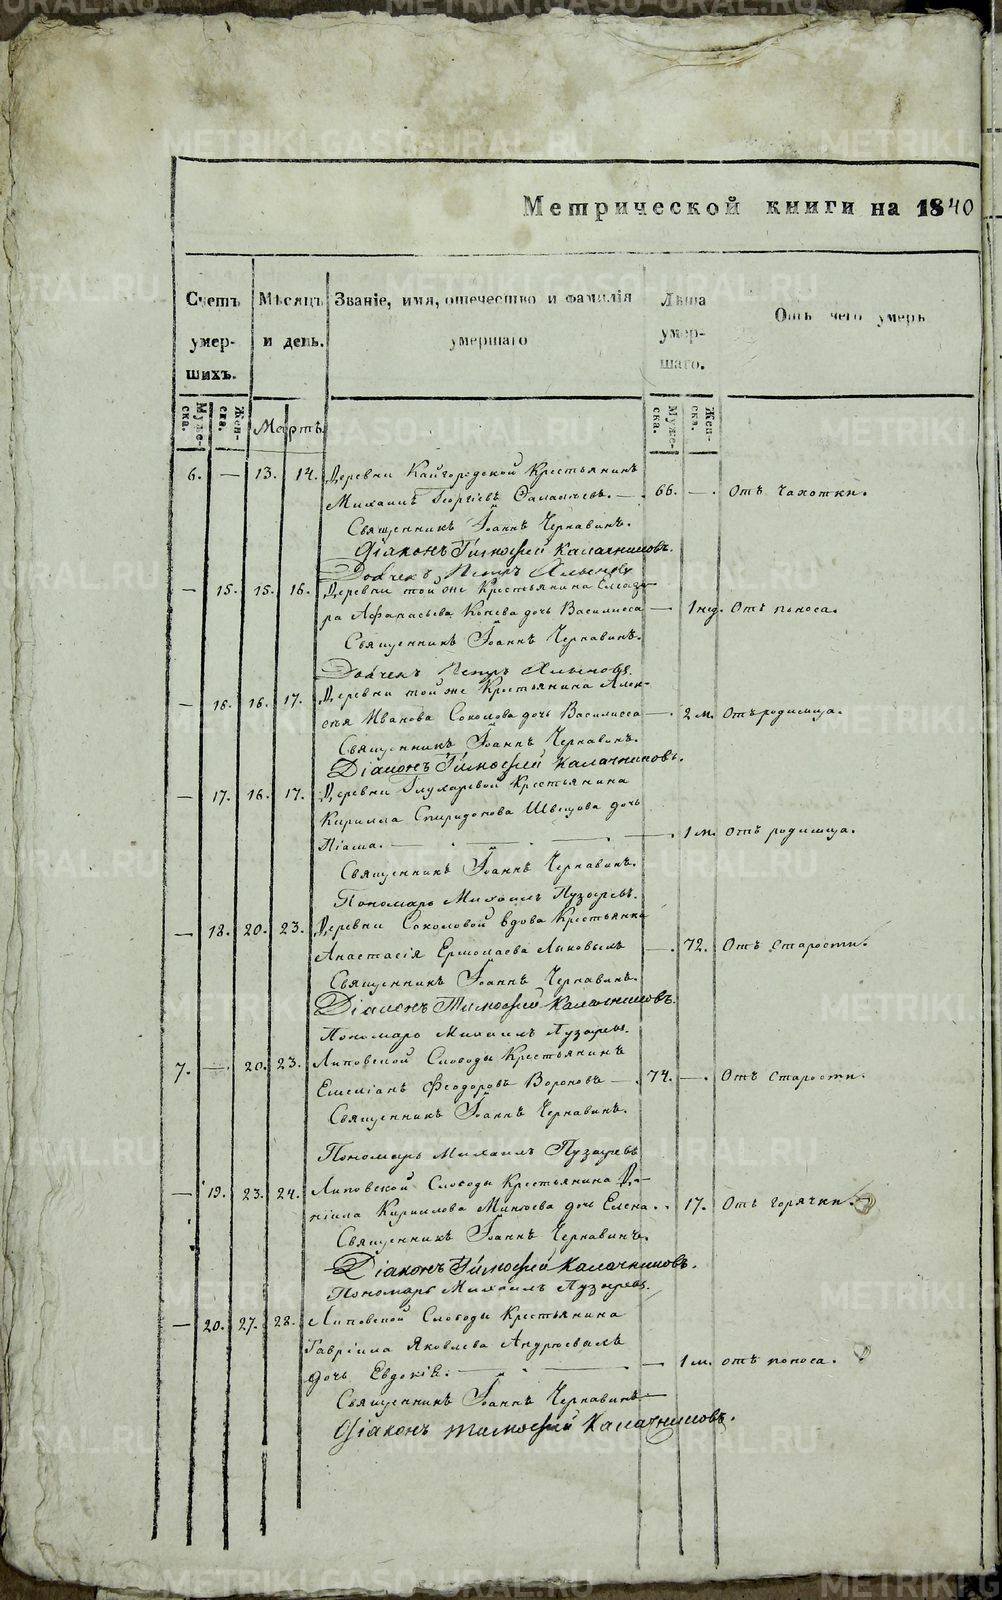 Метрической книги на 1840
Счетъ умер-шихъ.
Мѣсяцъ и день.
Званіе, имя, отечество и фамилія умершаго
Лѣта умер-шаго.
Отъ чего умеръ
Муже-ска.
Жен-ска.
Мартъ.
Муже-ска.
Жен-ска.
6. — 13. 14. Деревни Кайгородской Крестьянинъ
Михаилъ Георгіевъ — 66. — Отъ Чахотки.
Священникъ Іоаннъ Чернавинъ.
Діаконъ Тимофей Калачниковъ.
Дьячекъ Петръ
— 15. 15. 16. Деревни той же Крестьянина Елеаза-
ра Афанасьева Конева дочь Василисса — 1 нед. Отъ поноса.
Священникъ Іоаннъ Чернавинъ.
Дьячекъ Петръ
— 16. 16. 17. Деревни той же Крестьянина Алек-
сѣя Иванова Соколова дочь Василисса — 2 м. Отъ родимца.
Священникъ Іоаннъ Чернавинъ.
Діаконъ Тимофей Калачниковъ.
— 17. 16. 17. Деревни Глухаревой Крестьянина
Кирилла Спиридонова Швецова дочь
Піама. — 1 м. Отъ родимца.
Священникъ Іоаннъ Чернавинъ.
Пономарь Михаилъ Пузыревъ.
— 18. 20. 23. Деревни Соколовой вдова Крестьянка
Анастасія Ермолаева — 72. Отъ Старости.
Священникъ Іоаннъ Чернавинъ.
Діаконъ Тимофей Калачниковъ.
Пономарь Михаилъ Пузыревъ.
7. — 20. 23. Липовской Слободы Крестьянинъ
Емеліанъ Феодоровъ Вороновъ — 74. — Отъ Старости.
Священникъ Іоаннъ Чернавинъ.
Пономарь Михаилъ Пузыревъ
— 19. 23. 24. Липовской Слободы Крестьянина Да-
ніила Кириллова дочь Елена. 17. Отъ горячки.
Священникъ Іоаннъ Чернавинъ.
Діаконъ Тимофей Калачниковъ.
Пономарь Михаилъ Пузыревъ.
— 20. 27. 28. Липовской Слободы Крестьянина
Гавріила Яковлева
дочь Евдокія. — 1 м. отъ поноса.
Священникъ Іоаннъ Чернавинъ
Діаконъ Тимофей Калачниковъ.
METRIKI.GASO-URAL.RU